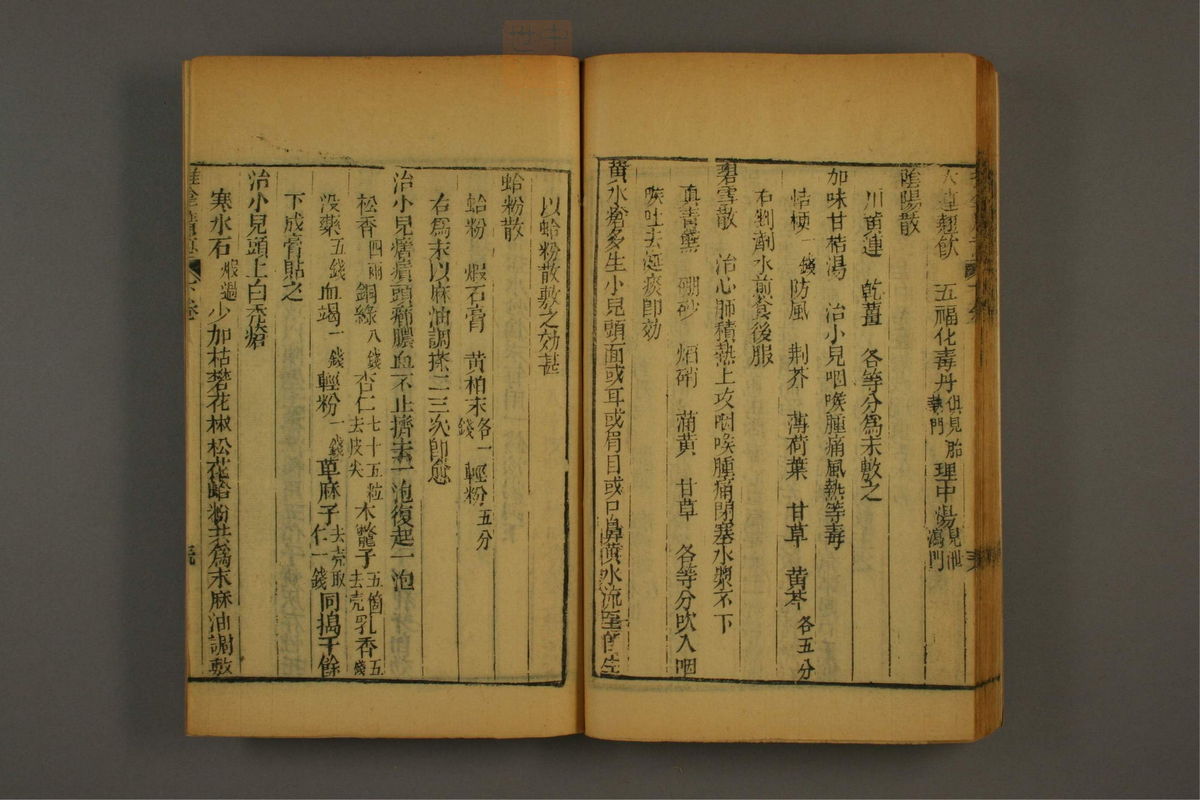 大連翹飲 五福化毒丹俱見胎熱門 理中湯見泄瀉門
陰陽散
川黄連 乾薑 各等分爲末敷之
加味甘桔湯 治小兒咽喉腫痛風熱等毒
桔梗一錢 防風 荆芥 薄荷葉 甘草 黄芩各五分
右剉劑水煎食後服
碧雪散 治心肺積熱上攻咽喉腫痛閉塞水漿不下
真青黛 硼砂 焰硝 蒲黄 甘草 各等分吹入咽
喉吐去涎痰即効
黄水瘡多生小兒頭面或耳或眉目或口鼻黄水流至即生
以蛤粉散敷之効甚
蛤粉散
蛤粉 煆石膏 黄柏末各一錢 輕粉五分
右爲末以麻油調搽二三次即愈
治小兒癤癀頭癰膿血不止擠去一泡復起一泡
松香四兩 銅綠八錢 杏仁七十五粒去皮尖 木鼈子五箇去壳 乳香五錢
没藥五錢 血竭一錢 輕粉一錢 草麻子去壳取仁一錢 同搗千餘
下成膏貼之
治小兒頭上白秃瘡
寒水石煆過 少加枯礬花椒松花蛤粉共爲末麻油調敷